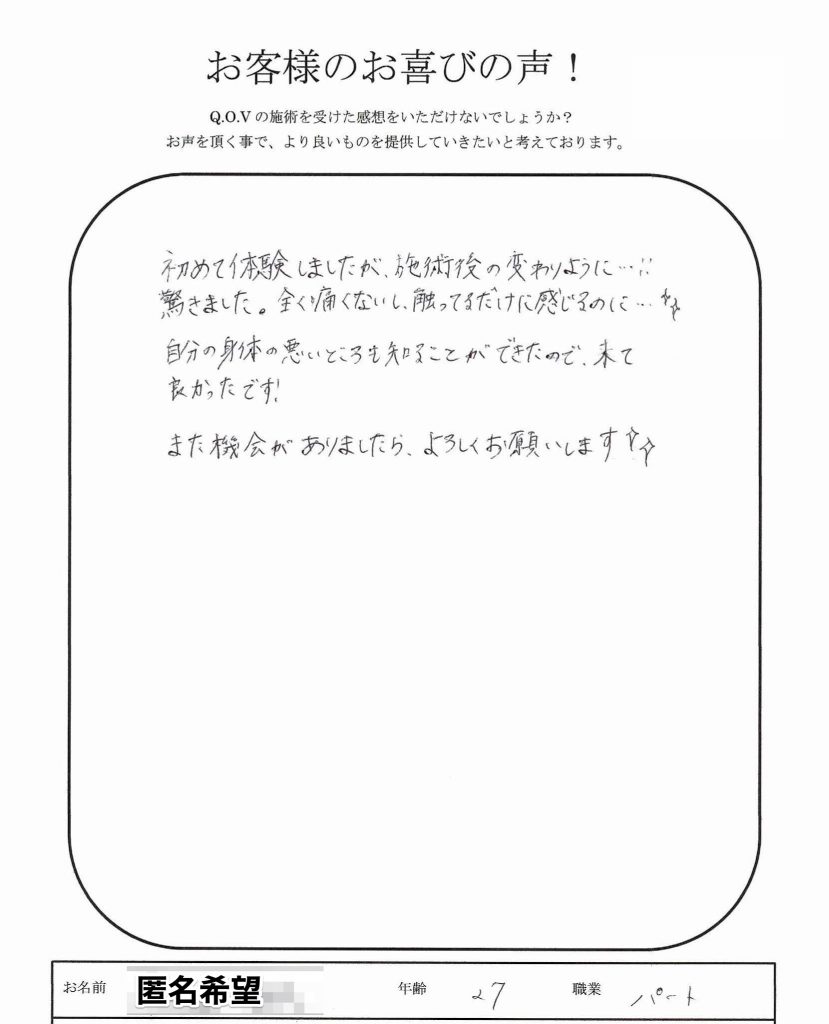 お客様のお喜びの声！
Q.O.Vの施術を受けた感想をいただけないでしょうか？
お声を頂く事で、より良いものを提供していきたいと考えております。
初めて体験しましたが、施術後の変わりように…!!
驚きました。全く痛くないし、触ってるだけに感じるのに…
自分の身体の悪いところも知ることができたので、来て
良かったです!
また機会がありましたら、よろしくお願いします
お名前 匿名希望 年齢 27 職業 パート